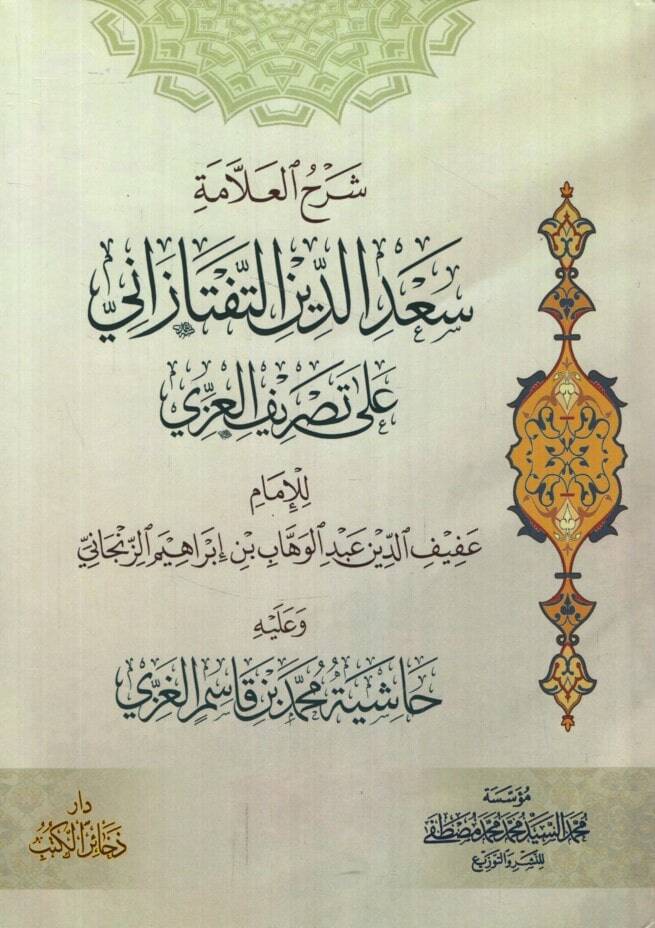 شَرْحُ ٱلْعَلَّامَةِ
سَعْدِ الدِّيْنِ التَّفْتَازَانِيِّ
عَلَى تَصْرِيفِ الْعِزِّي
لِلْإِمَامِ
عَفِيْفِ ٱلدِّيْنِ عَبْدِ ٱلْوَهَّابِ بْنِ إِبْرَاهِيْمَ ٱلزَّنْجَانِيِّ
وَعَلَيْهِ
حَاشِيَةُ مُحَمَّدِ بْنِ قَاسِمٍ الْغَزِّي
مُؤَسَّسَة
مُحَمَّد السَّيِّد مُحَمَّد مُحَمَّد مُصْطَفَى
لِلنَّشْرِ وَالتَّوْزِيْع
دار
ذَخَائِرُ الْكُتُبْ